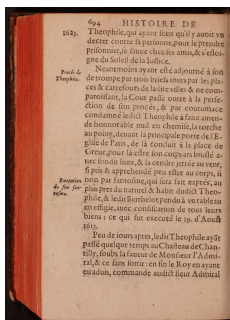 694 HISTOIRE DE
1623. Theophile, qui ayant sceu qu'il y auoit vn
decret contre sa personne, pour le prendre
prisonnier, se sauue chez ses amis, & s'esloi-
gne du Soleil de la Iustice.
Procés de Theophile.
Neantmoins ayant esté adjourné à son
de trompe par trois briefs iours par les pla-
ces & carrefours de ladite ville & ne com-
paroissant, la Cour passe outre à la perfe-
ction de son procés, & par coutumace
condamne ledit Theophile à faire amen-
de honnorable nud en chemise, la torche
au poing, deuant la principale porte de l'E-
glise de Paris, de là conduit à la place de
Greue, pour là estre son corps ars bruslé a-
uec son liure, & la cendre jettée au vent,
si pris & apprehendé peu estre au corps, si
non par fantosme, qui sera fait exprés, au
Execution de son fan-
tosme.
plus pres du naturel & habit dudict Theo-
phile, & ledit Berthelot pendu à vn tableau
en effigie, auec confiscation de tous leurs
biens; ce qui fut executé le 19. d'Aoust
1623.
Peu de iours apres, ledit Theophile ayãt
passé quelque temps au Chasteau de Chan-
tilly, soubs la faueur de Monsieur l'Admi-
ral, & ce sans sortir: en fin le Roy en ayant
eu aduis, commande audict sieur Admiral